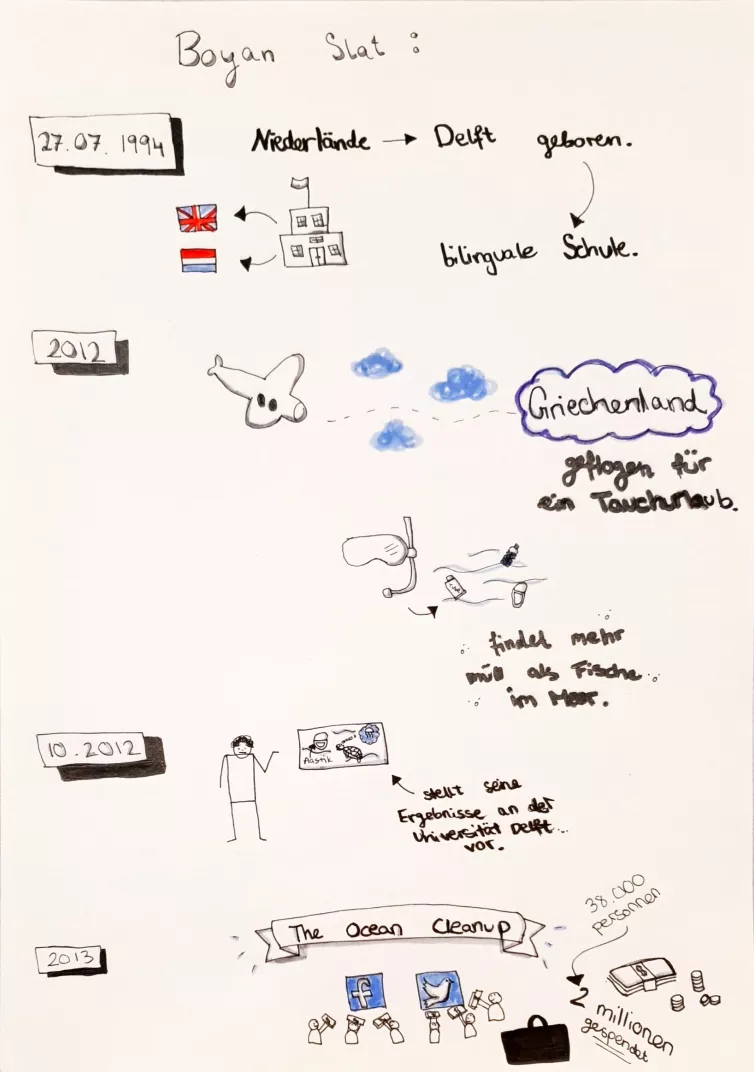 Boyan Slat :
27.07.1994
Niederlände → Delft geboren.
bilinguale Schule.
2012
Griechenland
geflogen für
ein Tauchurlaub.
findet mehr
müll als Fische
im Meer.
10.2012
Plastik
stellt seine
Ergebnisse an der
Universität Delft
vor.
38.000
personnen
The Ocean Cleanup
2013
f
2 millionen
gespendet